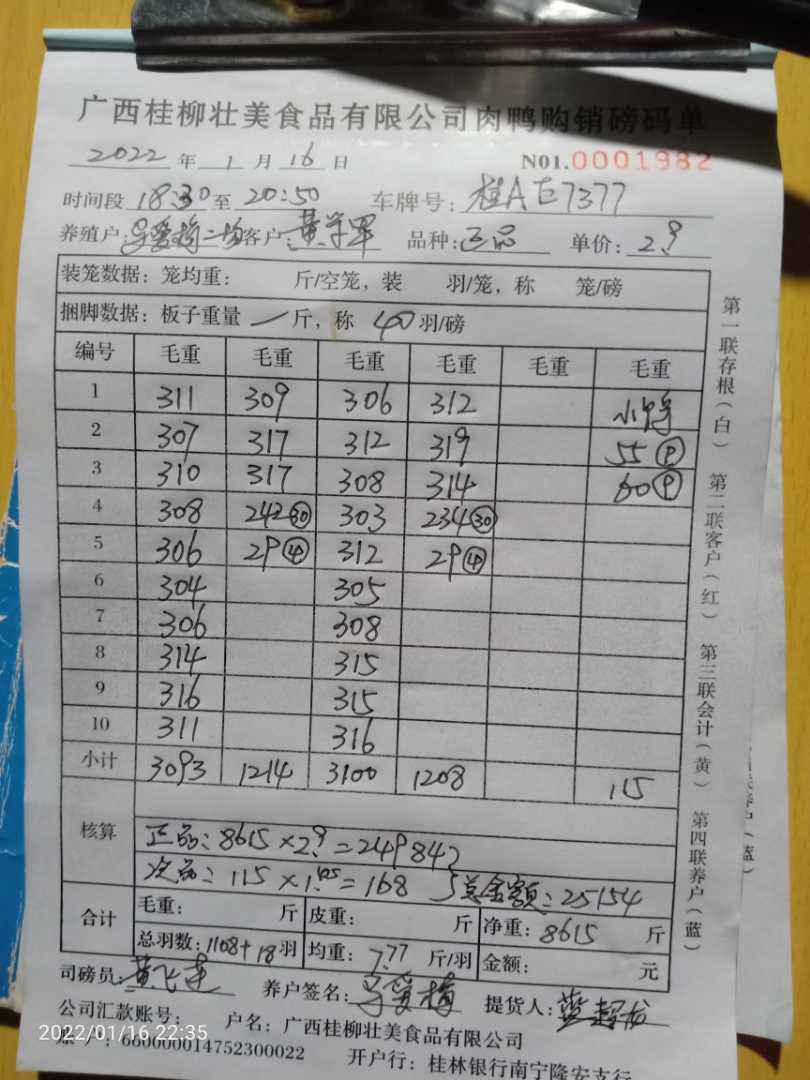 广西桂柳壮美食品有限公司肉鸭购销磅码单
2022 年 1 月 16 日 N01.0001982
时间段 18:30 至 20:50 车牌号: 桂A E7377
养殖户: 客户: 品种: 正品 单价: 2.9
装笼数据: 笼均重: 斤/空笼, 装 羽/笼, 称 笼/磅
捆脚数据: 板子重量 一 斤, 称 40 羽/磅
编号 毛重 毛重 毛重 毛重 毛重 毛重
1 311 309 306 312 小鸭
2 307 317 312 319 55 P
3 310 317 308 314 60 P
4 308 242 30 303 234 30
5 306 29 4 312 29 4
6 304 305
7 306 308
8 314 315
9 316 315
10 311 316
小计 3093 1214 3100 1208 115
核算 正品: 8615 × 2.9 = 249842
次品: 115 × 1.45 = 168 总金额: 25154
合计 毛重: 斤 皮重: 斤 净重: 8615 斤
总羽数: 1108+18 羽 均重: 7.77 斤/羽 金额: 元
司磅员: 养户签名: 提货人:
公司汇款账号: 户名: 广西桂柳壮美食品有限公司
账户: 6600000014752300022 开户行: 桂林银行南宁隆安支行
第一联存根(白) 第二联客户(红) 第三联会计(黄) 第四联养户(蓝)
2022/01/16 22:35